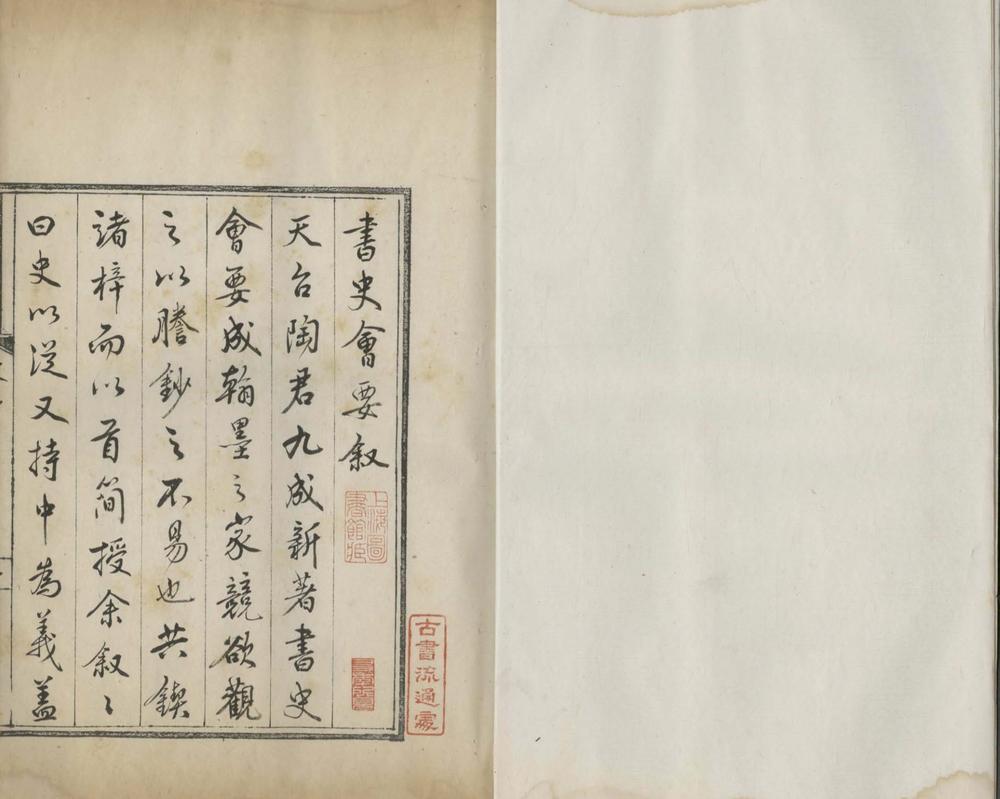 書史會要叙
天台陶君九成新著書史
會要成翰墨之家競欲觀
之以謄鈔之不易也共鋟
諸梓而以首簡授余叙々
曰史以從又持中為義蓋
上海圖
書館藏
古書流通處